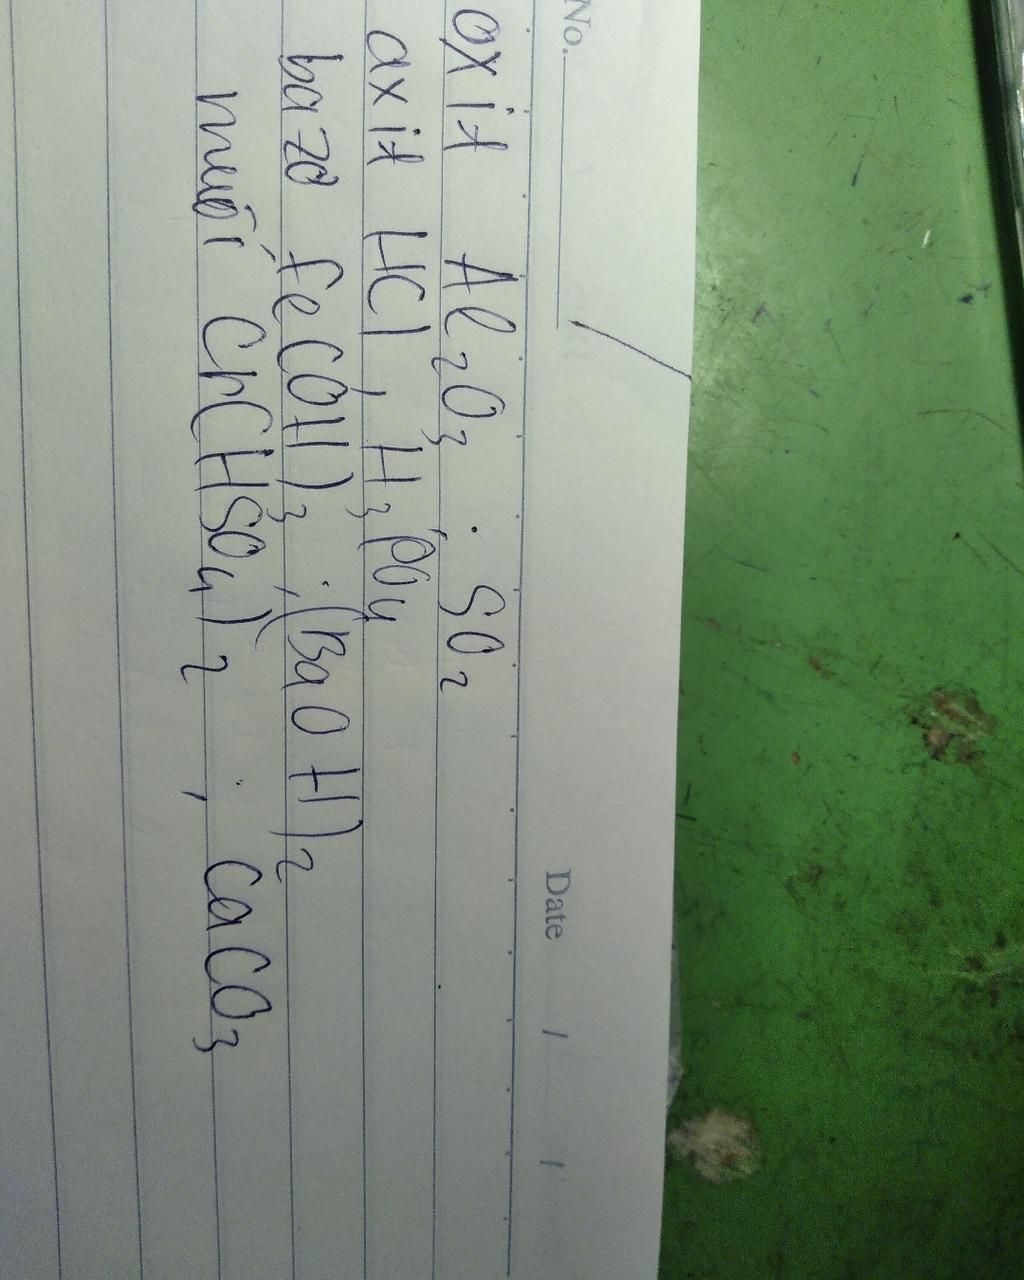 No. Date / /
oxit Al₂O₃ . SO₂
axit HCl , H₃PO₄
bazơ Fe(OH)₃ ; (BaOH)₂
muối Cr(HSO₄)₂ , CaCO₃